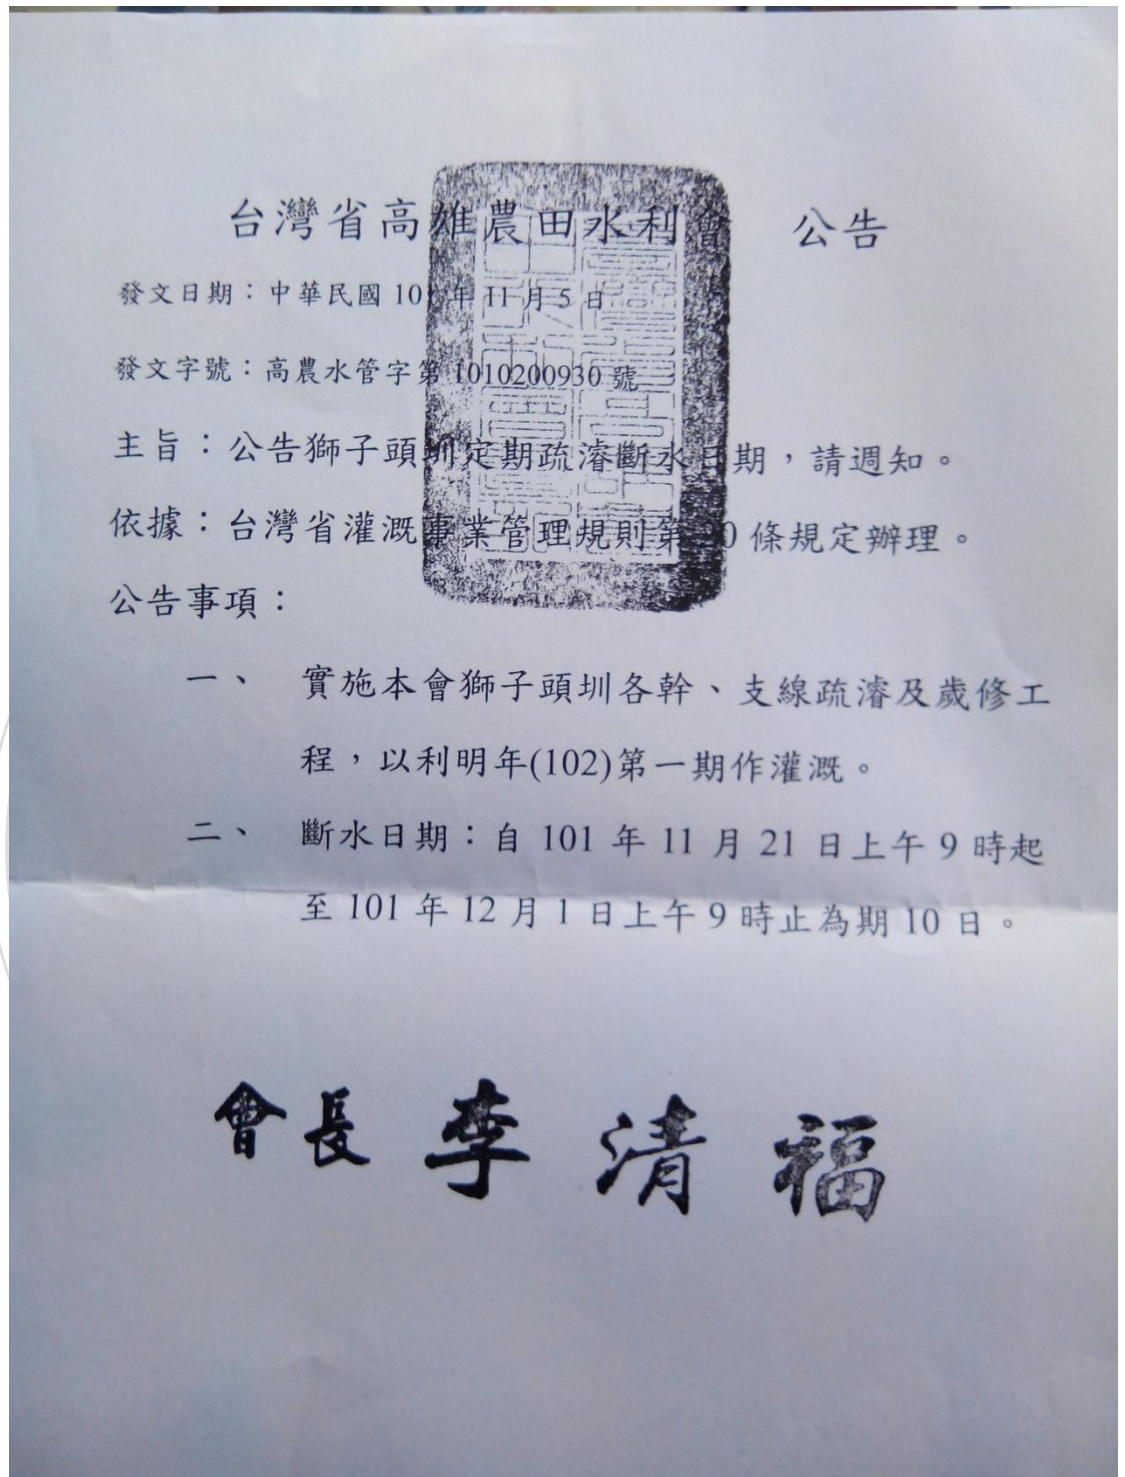 台灣省高雄農田水利會 公告
發文日期：中華民國 101 年 11 月 5 日
發文字號：高農水管字第 1010200930 號
主旨：公告獅子頭圳定期疏濬斷水日期，請週知。
依據：台灣省灌溉事業管理規則第 條規定辦理。
公告事項：
一、 實施本會獅子頭圳各幹、支線疏濬及歲修工
程，以利明年(102)第一期作灌溉。
二、 斷水日期：自 101 年 11 月 21 日上午 9 時起
至 101 年 12 月 1 日上午 9 時止為期 10 日。
會長 李清福